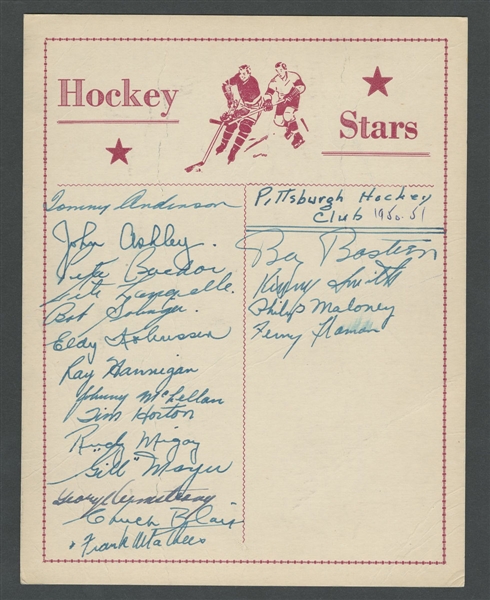 Hockey
Stars
Tommy Anderson
John Ashley.
Pete Backor
Bob Solinger
Eldy Kobussen
Ray Hannigan
Johnny McLellan
Tim Horton
"Rudy" Migay
"Gill" Mayer
George Armstrong
Chuck Blair
Frank Mathers
Pittsburgh Hockey
Club 1950-51
Baz Bastien
Kenny Smith
Philip Maloney
Ferny Flaman